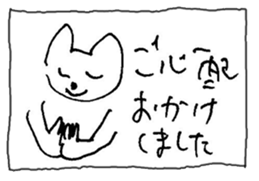 ご心配
おかけ
しました